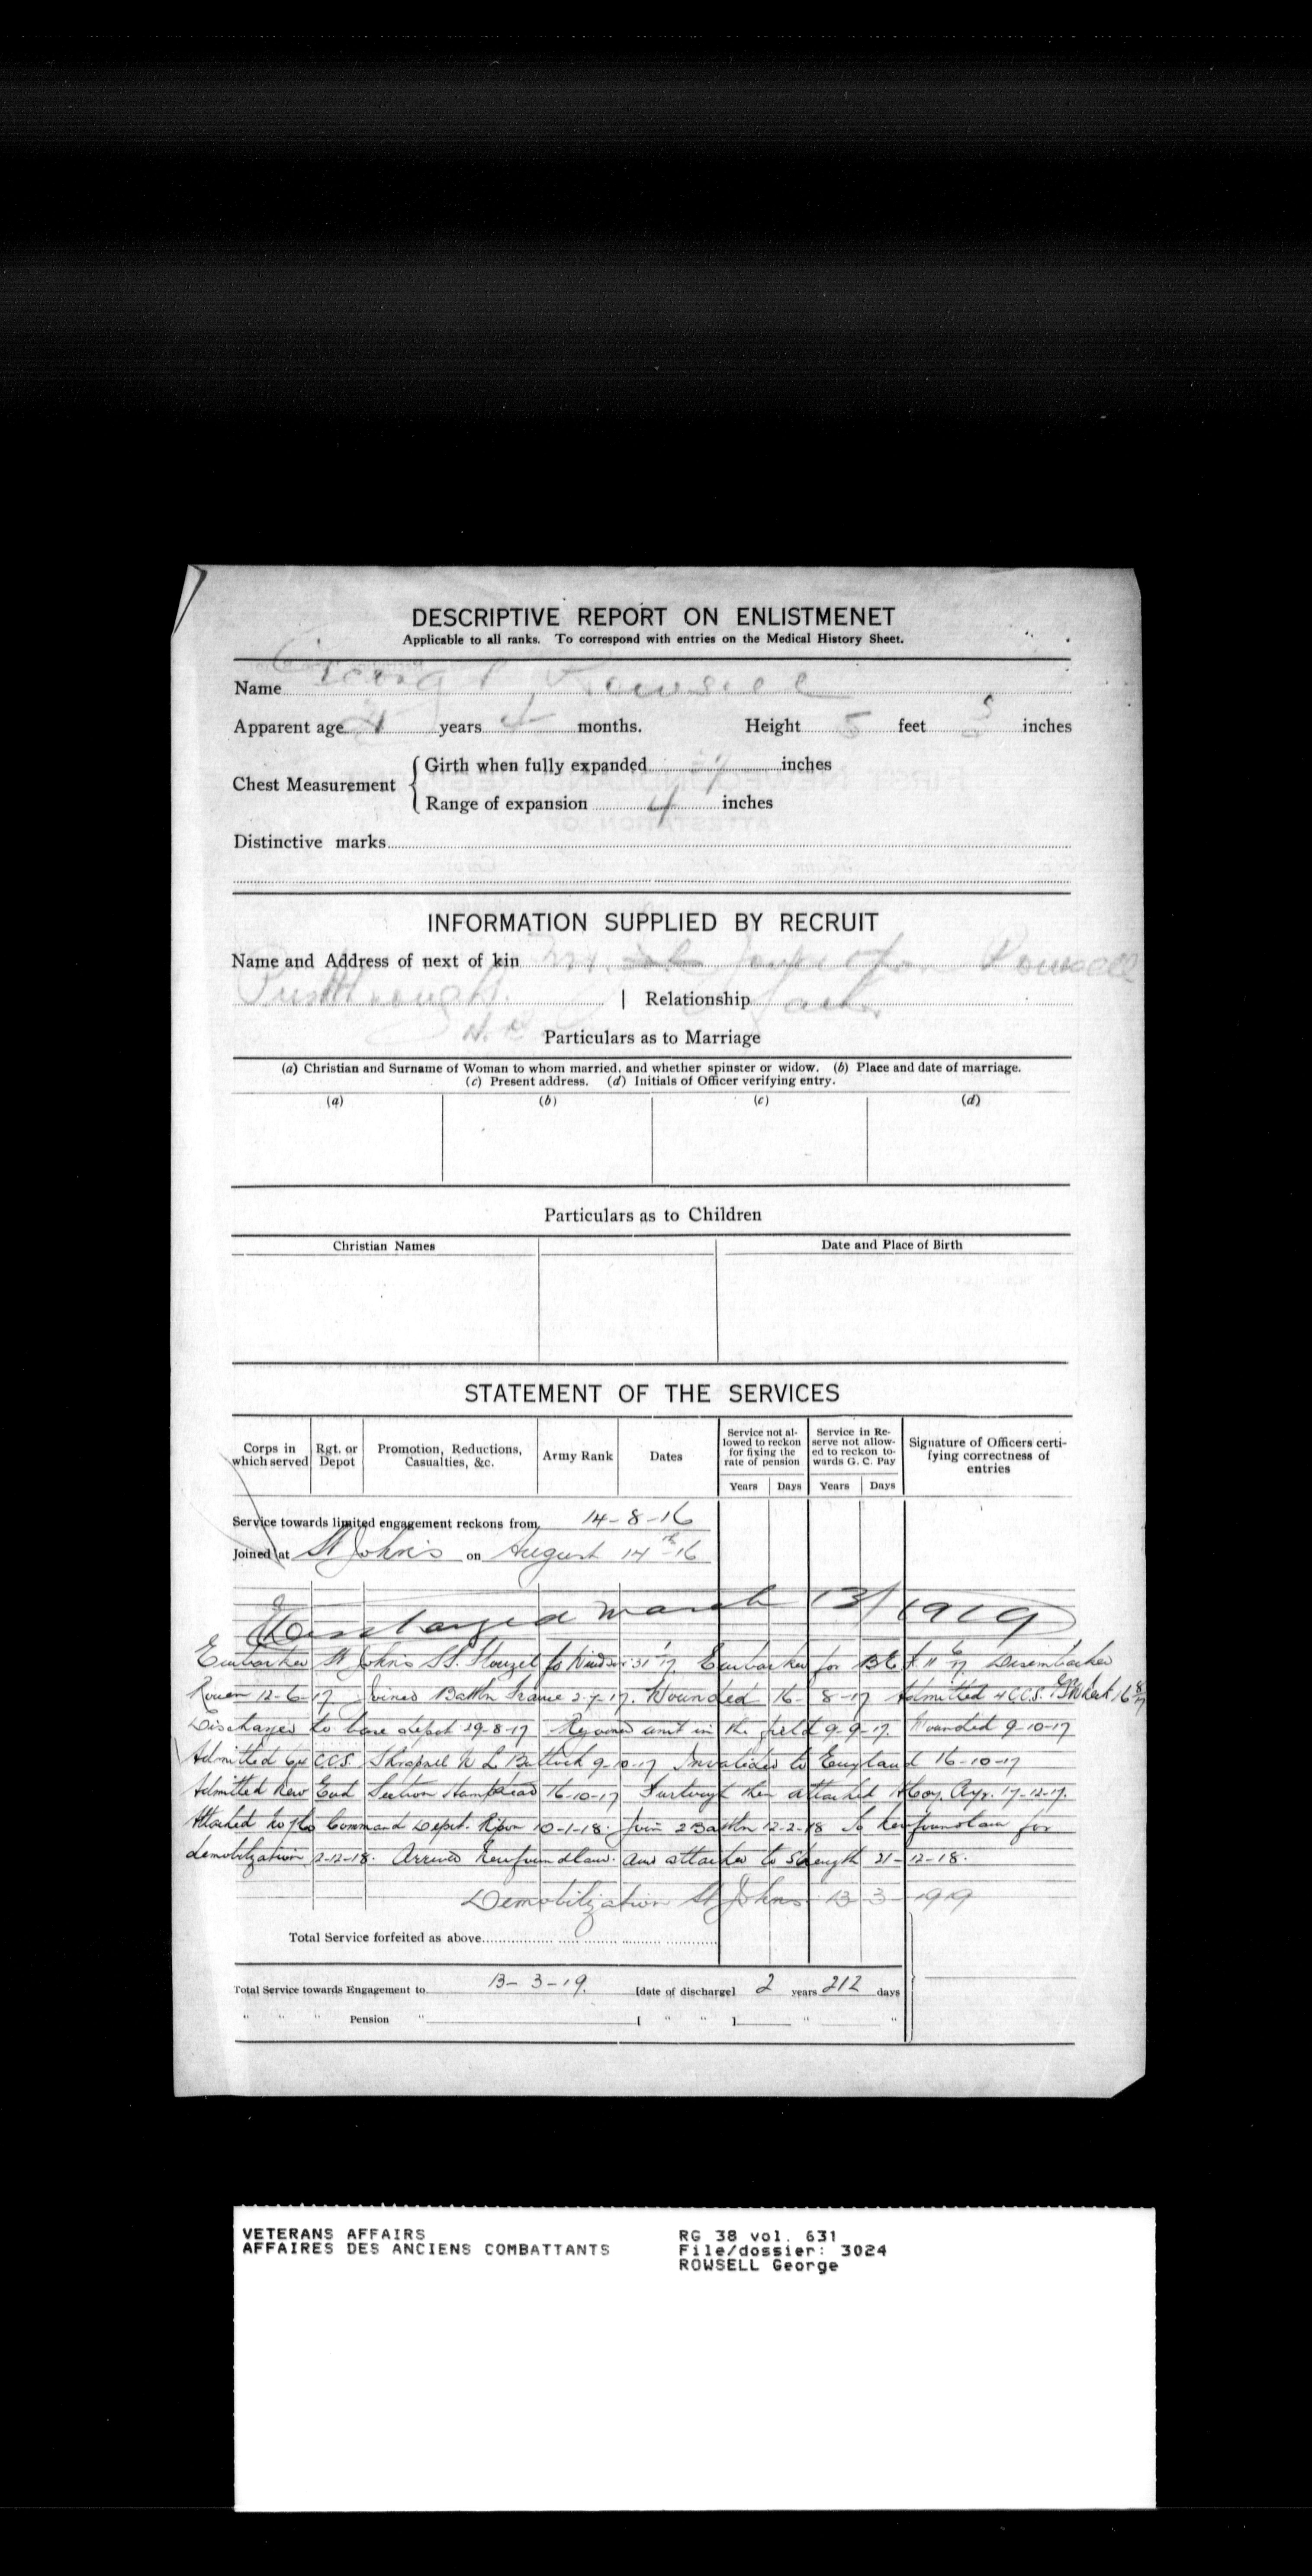 DESCRIPTIVE REPORT ON ENLISTMENET
Applicable to all ranks. To correspond with entries on the Medical History Sheet.
Name George Rowsell
Apparent age 21 years months. Height 5 feet 5 inches
Chest Measurement
Girth when fully expanded inches
Range of expansion 4 inches
Distinctive marks
INFORMATION SUPPLIED BY RECRUIT
Name and Address of next of kin Rowsell
Pushthrough | Relationship
Particulars as to Marriage
(a) Christian and Surname of Woman to whom married, and whether spinster or widow. (b) Place and date of marriage.
(c) Present address. (d) Initials of Officer verifying entry.
(a) (b) (c) (d)
Particulars as to Children
Christian Names Date and Place of Birth
STATEMENT OF THE SERVICES
Corps in which served Rgt. or Depot Promotion, Reductions, Casualties, &c. Army Rank Dates Service not allowed to reckon for fixing the rate of pension Service in Reserve not allowed to reckon towards G. C. Pay Signature of Officers certifying correctness of entries
Years Days Years Days
Service towards limited engagement reckons from 14-8-16
Joined at St John's on August 14th 16
Discharged March 13/1919
Embarked St John's SS. Florizel to Windsor 31 1 17. Embarked for B.E.F. 11 6 17 Disembarked
Rouen 12-6-17 Joined Battln France 2-7-17. Wounded 16-8-17 Admitted 4 C.C.S. 16 8 17
Discharged to base depot 29-8-17 Rejoined unit in the field 9-9-17. Wounded 9-10-17
Admitted 64 C.C.S. Shrapnel W L Buttock 9-10-17 Invalided to England 16-10-17
Admitted New End Section Hampstead 16-10-17 Furlough then attached H Coy. Ayr. 17-12-17.
Attached to Command Depot. Ripon 10-1-18. Join 2 Battln 12-2-18 To Newfoundland for
demobilization 2-12-18. Arrived Newfoundland. and attached to Strength 21-12-18.
Demobilization St Johns 13-3-1919
Total Service forfeited as above
Total Service towards Engagement to 13-3-19. [date of discharge] 2 years 212 days
" " " Pension " [ " " ] " "
VETERANS AFFAIRS RG 38 vol. 631
AFFAIRES DES ANCIENS COMBATTANTS File/dossier: 3024
ROWSELL George